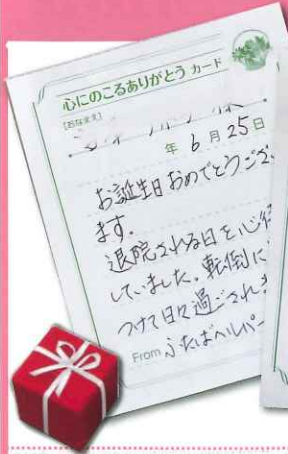 心にのこるありがとう カード
【おなまえ】
様
年 6月25日
お誕生日おめでとうござ
ます。
退院される日を心待
していました。転倒に
つけて日々過ごされ
From ふたばヘルパー